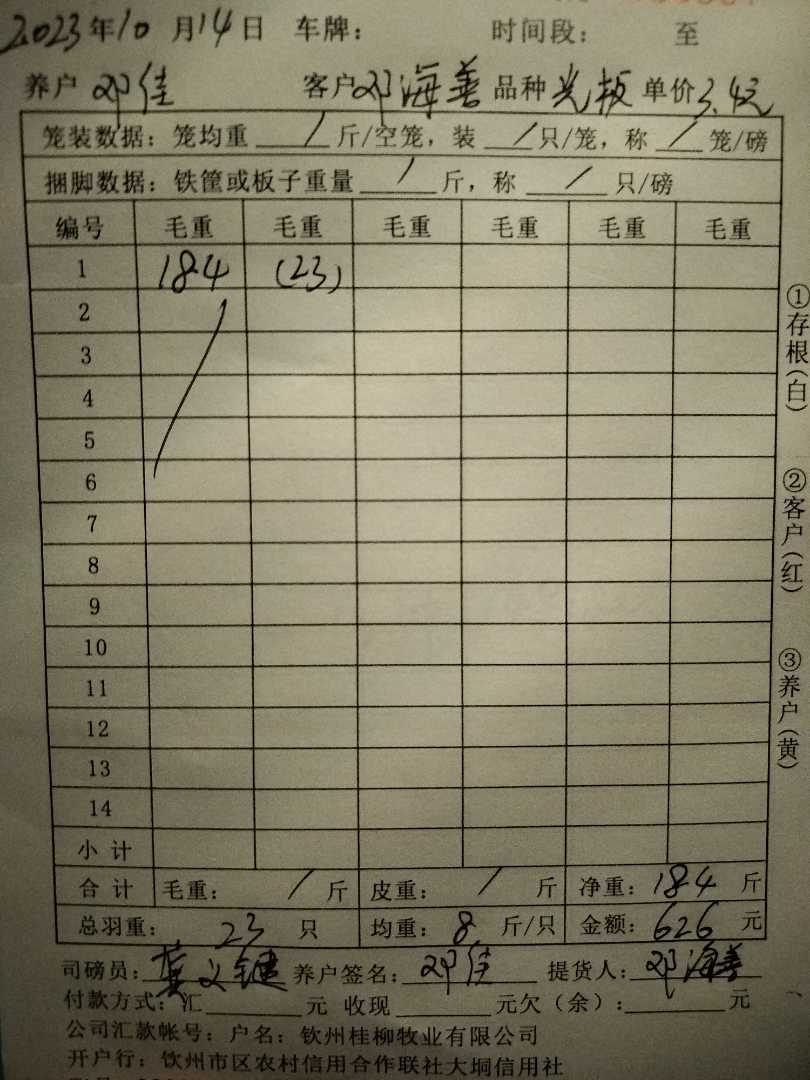 2023年10月14日 车牌： 时间段： 至
养户 邓佳 客户 邓海善 品种 光板 单价 3.4元
笼装数据：笼均重 / 斤/空笼，装 / 只/笼，称 / 笼/磅
捆脚数据：铁筐或板子重量 / 斤，称 / 只/磅
编号 毛重 毛重 毛重 毛重 毛重 毛重
1 184 (23)
2
3
4
5
6
7
8
9
10
11
12
13
14
小计
合计 毛重： / 斤 皮重： / 斤 净重：184 斤
总羽重： 23 只 均重：8 斤/只 金额：626 元
司磅员： 养户签名：邓佳 提货人：邓海善
付款方式：汇 元 收现 元欠（余）： 元
公司汇款帐号：户名：钦州桂柳牧业有限公司
开户行：钦州市区农村信用合作联社大垌信用社
①存根(白)
②客户(红)
③养户(黄)